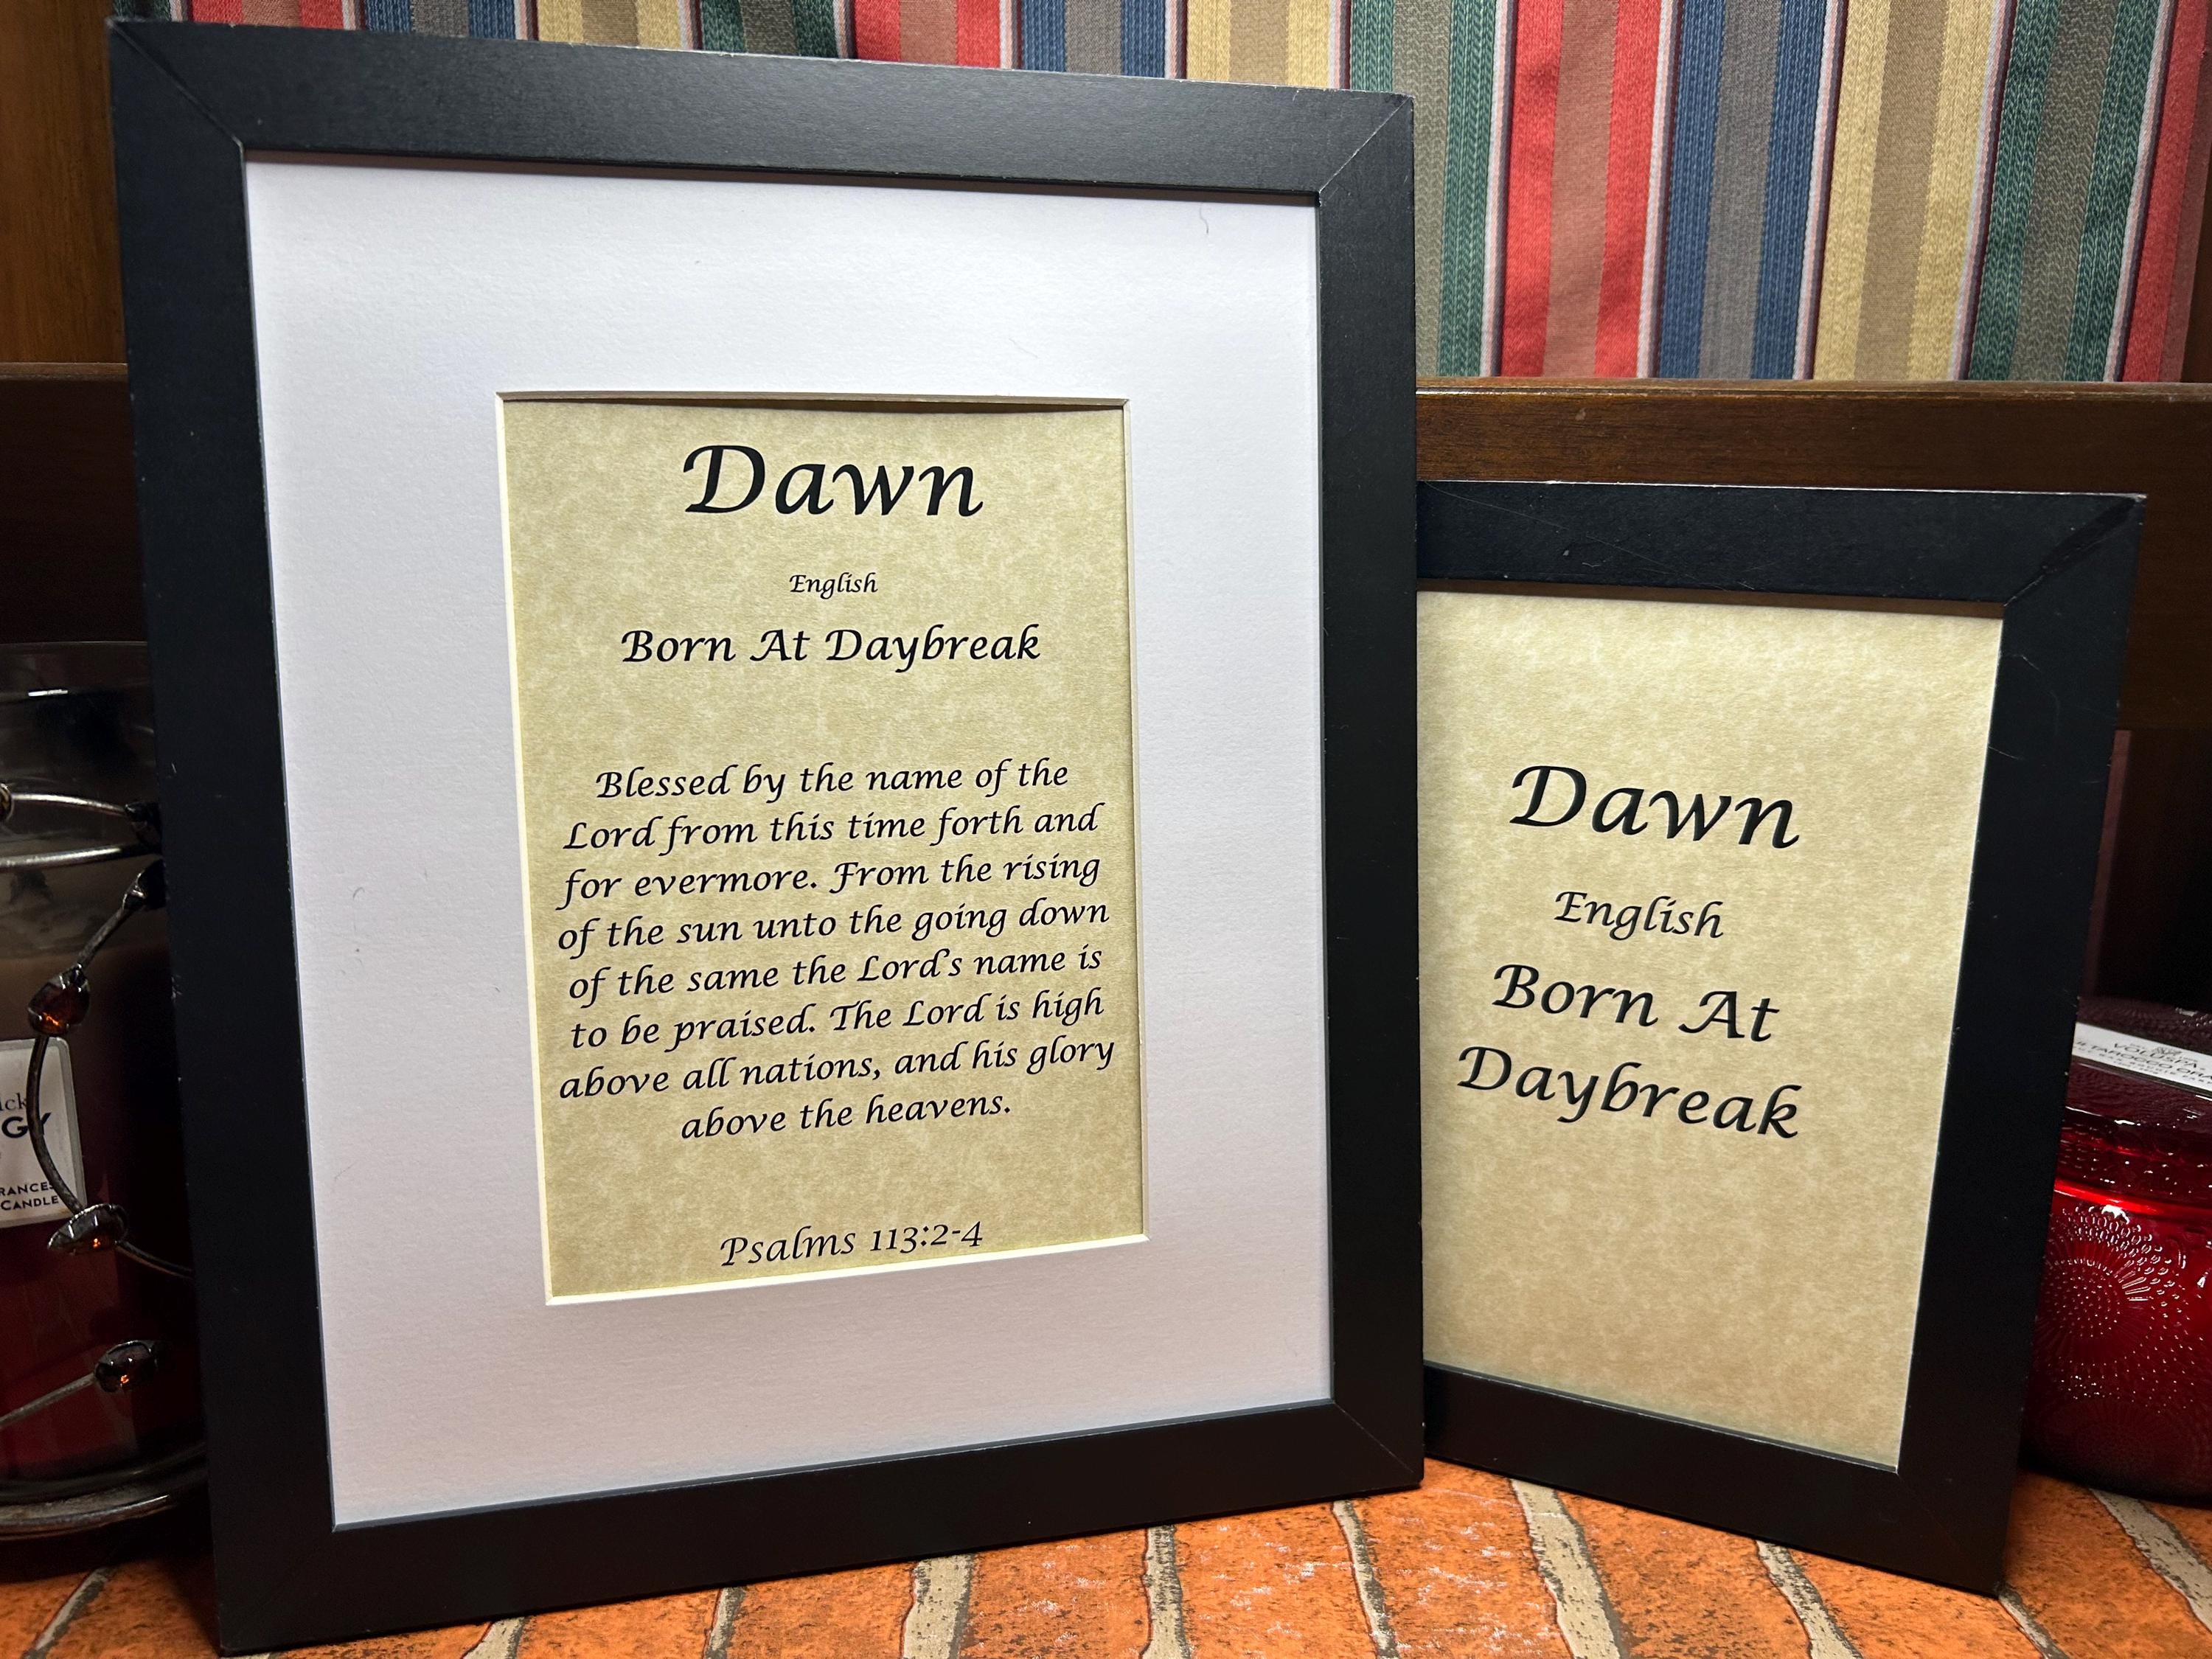 Dawn
English
Born At Daybreak
Blessed by the name of the
Lord from this time forth and
for evermore. From the rising
of the sun unto the going down
of the same the Lord's name is
to be praised. The Lord is high
above all nations, and his glory
above the heavens.
Psalms 113:2-4
Dawn
English
Born At
Daybreak
CANDLE
VOLUSPA